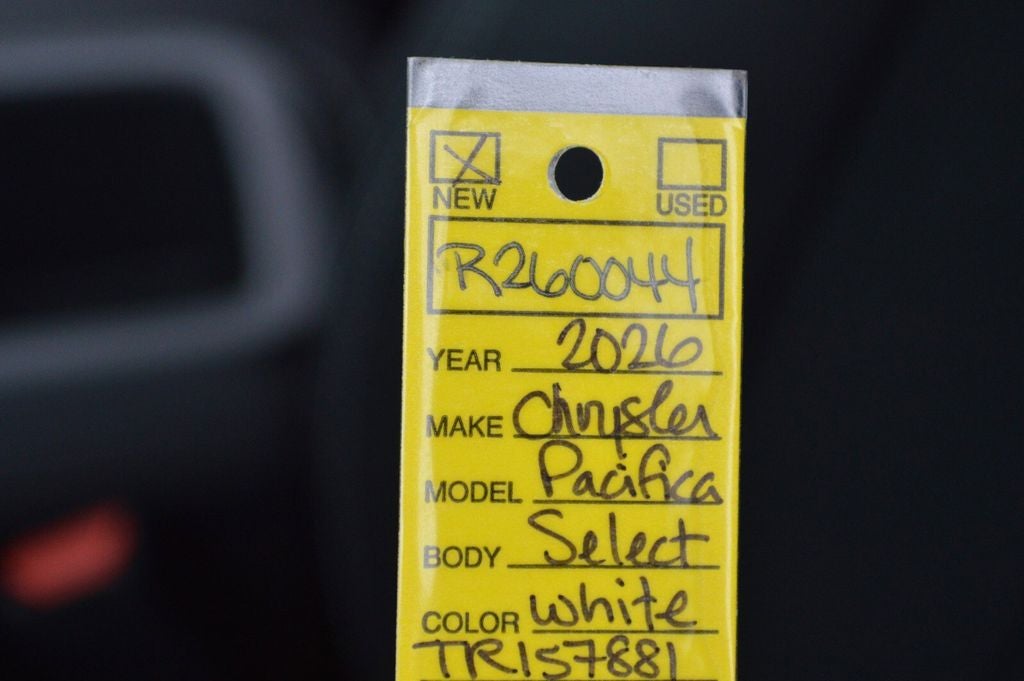 X
NEW USED
R260044
YEAR 2026
MAKE Chrysler
MODEL Pacifica
BODY Select
COLOR white
TR157881